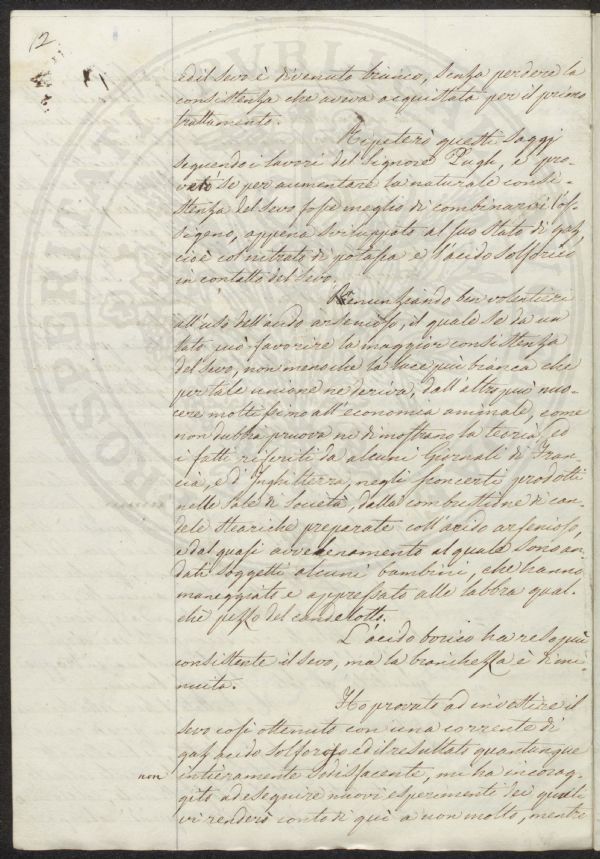 12
ed il sevo è divenuto bianco, senza perdere la
consistenza che aveva acquistata per il primo
trattamento.
Ripeterò questi saggi
seguendo i lavori del Signore Pugh, e pro-
verò se per aumentare la naturale consi-
stenza del sevo fosse meglio di combinarci l'os-
sigeno, appena sviluppato al suo stato di gaz,
cioè col nitrato di potassa e l'acido solforico
in contatto del sevo.
Renunziando ben volentieri
all'uso dell'acido arsenioso, il quale se da un
lato può favorire la maggior consistenza
del sevo, non meno che la luce più bianca che
per tale unione ne deriva, dall'altro può nuo-
cere moltissimo all'economia animale, come
non dubbia pruova ne dimostrano la teoria, ed
i fatti riferiti da alcuni Giornali di Fran-
cia, e d'Inghilterra, negli sconcerti prodotti
nelle sale di Società, dalla combustione di can-
dele steariche preparate coll'acido arsenioso,
e dal quasi avvelenamento al quale sono an-
dati soggetti alcuni bambini, che hanno
maneggiato e appressato alle labbra qual-
chè pezzo del candelotto.
L'acido borico ha reso più
consistente il sevo, ma la bianchezza è dimi-
nuita.
Ho provato ad investire il
sevo così ottenuto con una corrente di
gaz acido solforoso ed il resultato quantunque
non intieramente sodisfacente, mi ha incorag-
gito ad eseguire nuovi esperimenti dei quali
vi renderò conto di qui a non molto, mentre
PROSPERITATI PVBLICAE